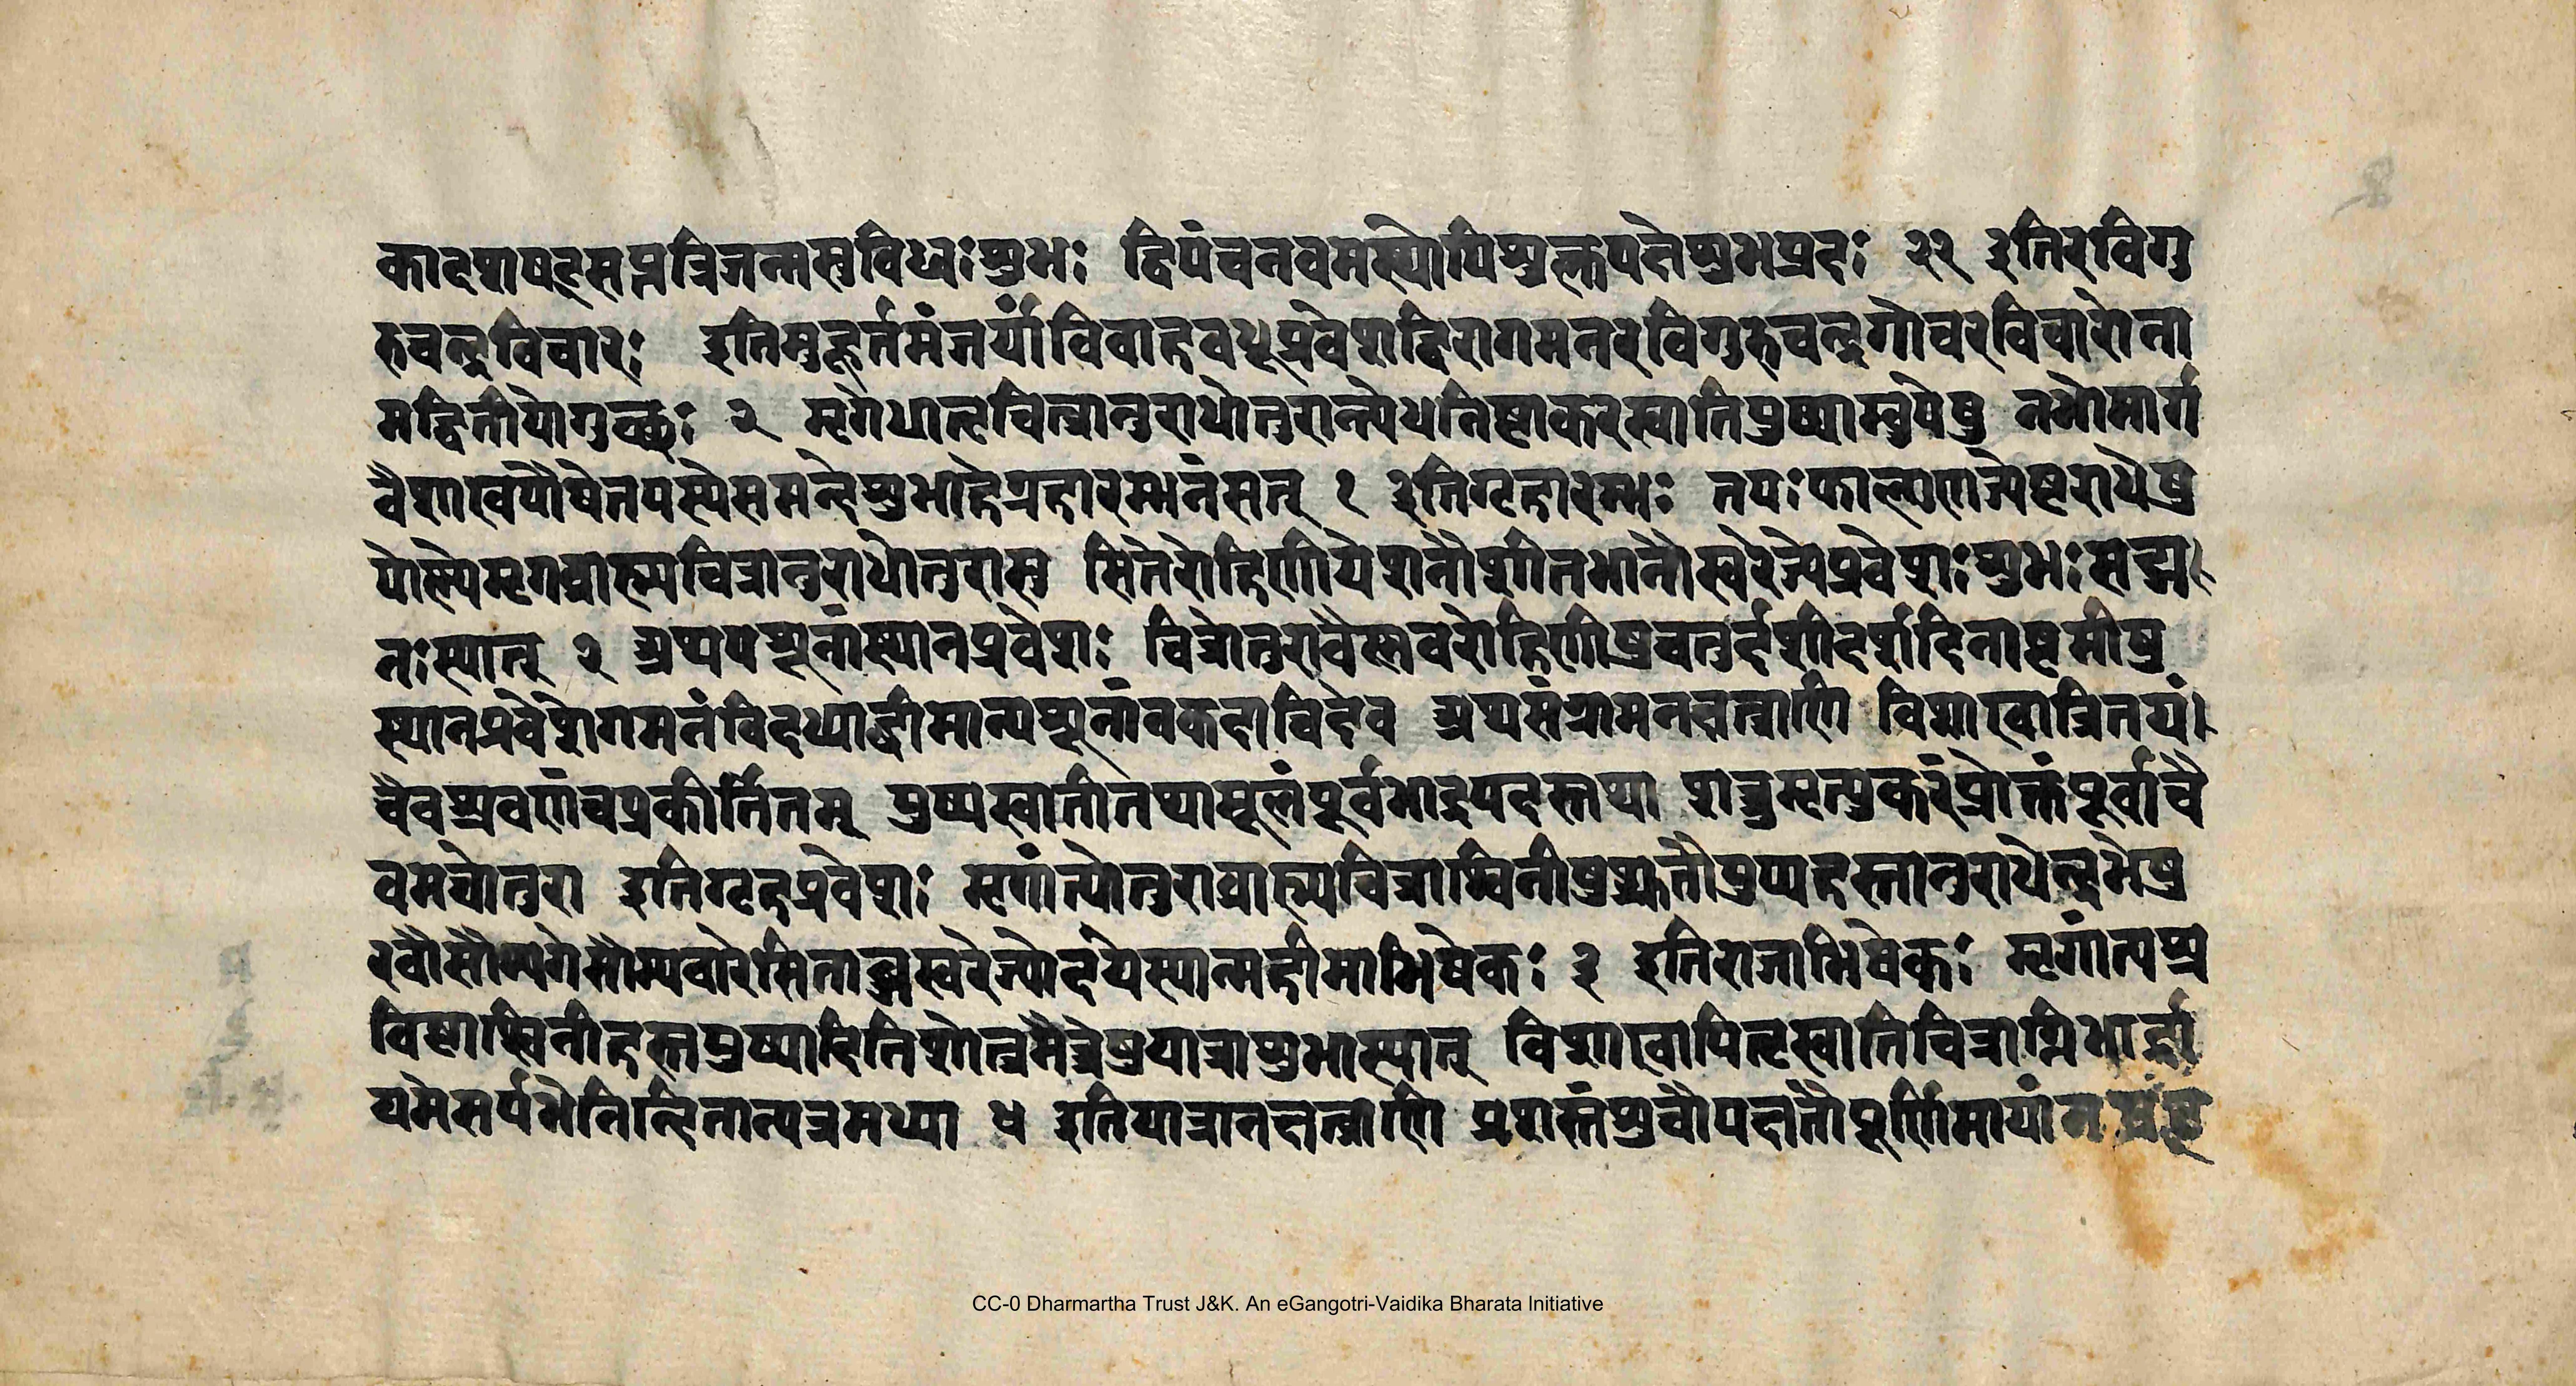 कादशषट्सप्तत्रिजन्मसुविधुःशुभः द्विपंचनवमस्थोपिशुक्लपक्षेशुभप्रदः २२ इतिरविगु
रुचन्द्रविचारः इतिमुहूर्तमंजर्यांविवाहवधूप्रवेशद्विरागमनरविगुरुचन्द्रगोचरविचारोना
मद्वितीयोगुच्छः २ मृगेधातृचित्रानुराधोत्तरान्त्येधनिष्ठाकरस्वातिपुष्याम्बुपेषु नभोमार्ग
वैशाखपौषेतपस्येसमन्देशुभाहेगृहारम्भनंसत् १ इतिगृहारम्भः तपःफाल्गुणज्येष्ठराधेषु
पौष्णेमृगब्राह्म्यचित्रानुराधोत्तरासु सितेरोहिणीयेशनौशीतभानौस्थिरेज्येप्रवेशःशुभःसद्म
नःस्यात् २ अथपशूनांस्थानप्रवेशः चित्रोत्तरावैष्णवरोहिणीषुचतुर्दशीदर्शदिनाष्टमीषु
स्थानप्रवेशोगमनंविदध्याद्धीमान्पशूनांवकदाचिदेव अथसंग्रामनक्षत्राणि विशाखात्रितयं
चैवश्रवणंचप्रकीर्तितम् पुष्यस्वातीतथामूलंपूर्वभाद्रपदस्तथा शत्रुमृत्युकरंप्रोक्तंपूर्वाचै
वमघोत्तरा इतिगृहप्रवेशः मृगांत्योत्तराब्राह्म्यचित्राश्विनीषुश्रुतौपुष्यहस्तानुराधेन्द्रभेषु
रवौसौम्यगेसौम्यवारेसिताब्जस्थिरेज्योदयेस्यान्महीमाभिषेकः ३ इतिराजाभिषेकः मृगांत्यश्र
विष्ठाश्विनीहस्तपुष्यादितिशेन्द्रमैत्रेषुयात्राशुभास्यात् विशाखापितृस्वातिचित्राग्निभार्द्रा
यमेसर्पभेनिन्दितान्यत्रमध्या ४ इतियात्रानक्षत्राणि प्रशस्तंध्रुवौपक्षतौपूर्णिमायांन
CC-0 Dharmartha Trust J&K. An eGangotri-Vaidika Bharata Initiative